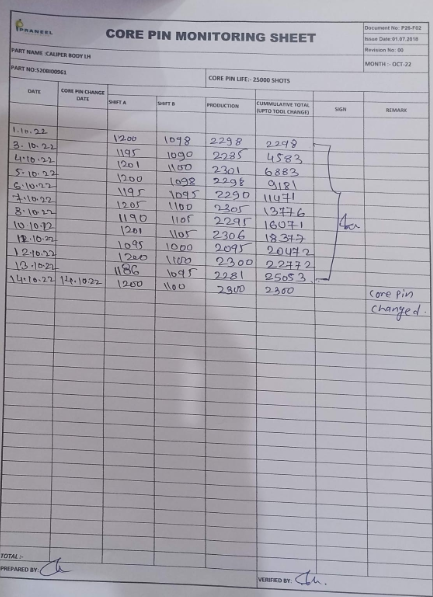 PRANSEL
CORE PIN MONITORING SHEET
Document No: P28-F02
Issue Date 01.07.2018
Revision No: 00
MONTH:- OCT-22
PART NAME :CALIPER BODY LH
PART NO:
CORE PIN LIFE:- 25000 SHOTS
DATE CORE PIN CHANGE DATE SHIFT A SHIFT B PRODUCTION CUMMULATIVE TOTAL (UPTO TOOL CHANGE) SIGN REMARK
1.10.22 1200 1098 2298 2298
3.10.22 1195 1090 2285 4583
4.10.22 1201 1100 2301 6883
5.10.22 1200 1098 2298 9181
6.10.22 1195 1095 2290 11471
7.10.22 1205 1100 2305 13776
8.10.22 1190 1105 2295 16071
10.10.22 1201 1105 2306 18377
11.10.22 1095 1000 2095 20472
12.10.22 1200 1100 2300 22772
13.10.22 1186 1095 2281 25053
14.10.22 14.10.22 1200 1100 2300 2300 Core pin
changed.
TOTAL :-
PREPARED BY:
VERIFIED BY: